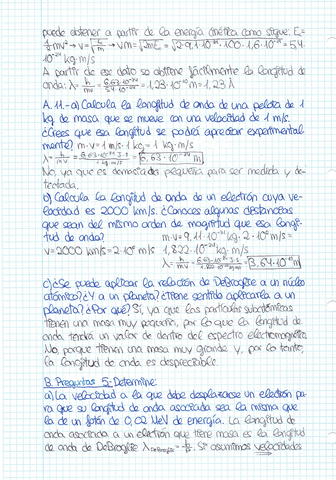 puede obtener a partir de la energía cinética como sigue: E=
½mv² → v=√ → v/m=√2mE = √2·9,1·10⁻³¹·100·1,6·10⁻¹⁹ = 5,4
10⁻²⁴ kg·m/s
A partir de ese dato se obtiene fácilmente la longitud de
onda: λ= h/mv = = 1,23·10⁻¹⁰m = 1,23 Å
A.11.-a) Calcula la longitud de onda de una pelota de 1
kg de masa que se mueve con una velocidad de 1 m/s.
¿Crees que esa longitud se podrá apreciar experimental
mente? m·v = 1 m/s · 1 kg = 1 kg m/s
λ = h/mv = = 6,63·10⁻³⁴ m
No, ya que es demasiado pequeña para ser medida y de-
tectada.
b) Calcula la longitud de onda de un electrón cuya ve-
locidad es 2000 km/s. ¿Conoces algunas distancias
que sean del mismo orden de magnitud que esa longi-
tud de onda? m·v = 9,11·10⁻³¹ kg · 2·10⁶ m/s =
v=2000 km/s = 2·10⁶ m/s 1,822·10⁻²⁴ kg·m/s
λ = h/mv = = 3,64·10⁻¹⁰ m
c) ¿Se puede aplicar la relación de DeBroglie a un núcleo
atómico? ¿Y a un planeta? ¿Tiene sentido aplicarla a un
planeta? ¿Por qué? Sí, ya que las partículas subatómicas
tienen una masa muy pequeña, por lo que la longitud de
onda tendrá un valor de dentro del espectro electromagnético
No, porque tienen una masa muy grande y, por lo tanto,
la longitud de onda es despreciable.
B. Preguntas 5. Determine:
a) La velocidad a la que debe desplazarse un electrón pa
ra que su longitud de onda asociada sea la misma que
la de un fotón de 0,02 MeV de energía. La longitud de
onda asociada a un electrón que tiene masa es la longitud
de onda de DeBroglie λ DeBroglie = h/p. Si asumimos velocidades